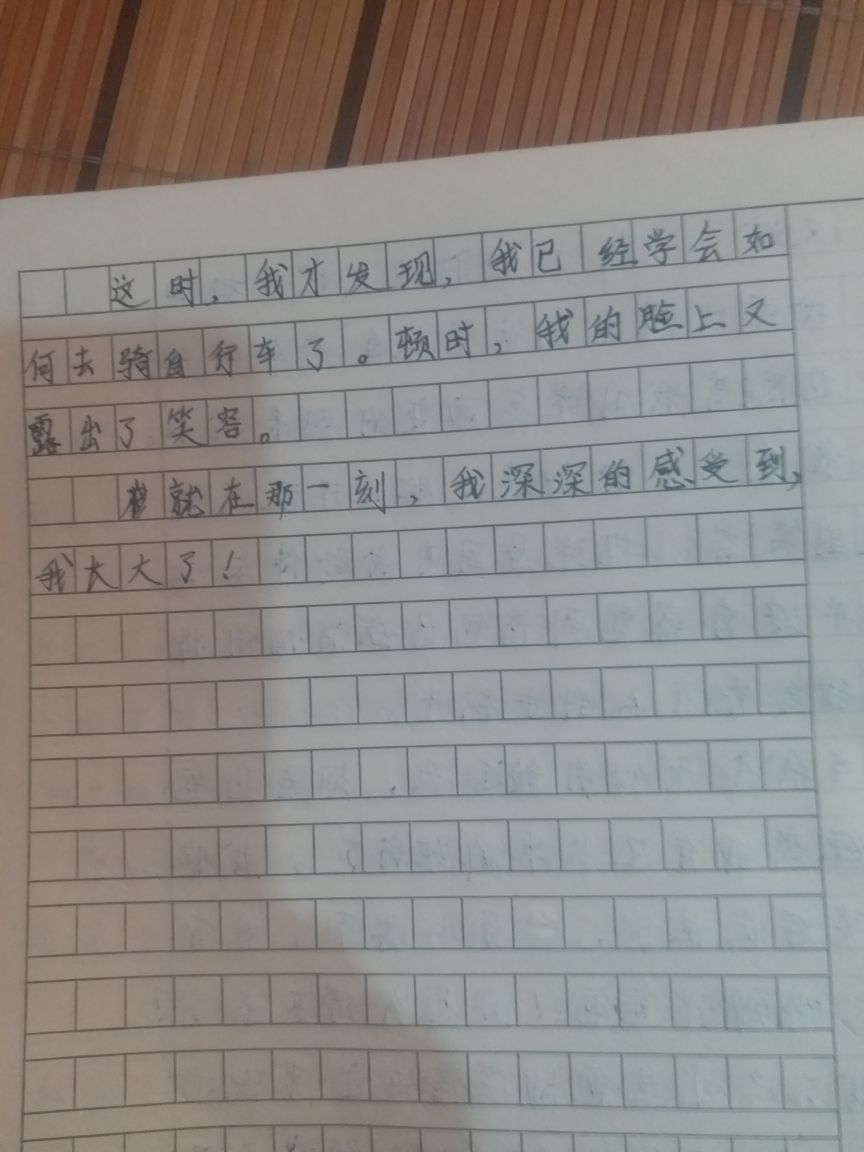 这时，我才发现，我已经学会如
何去骑自行车了。顿时，我的脸上又
露出了笑容。
就在那一刻，我深深的感受到，
我长大了！